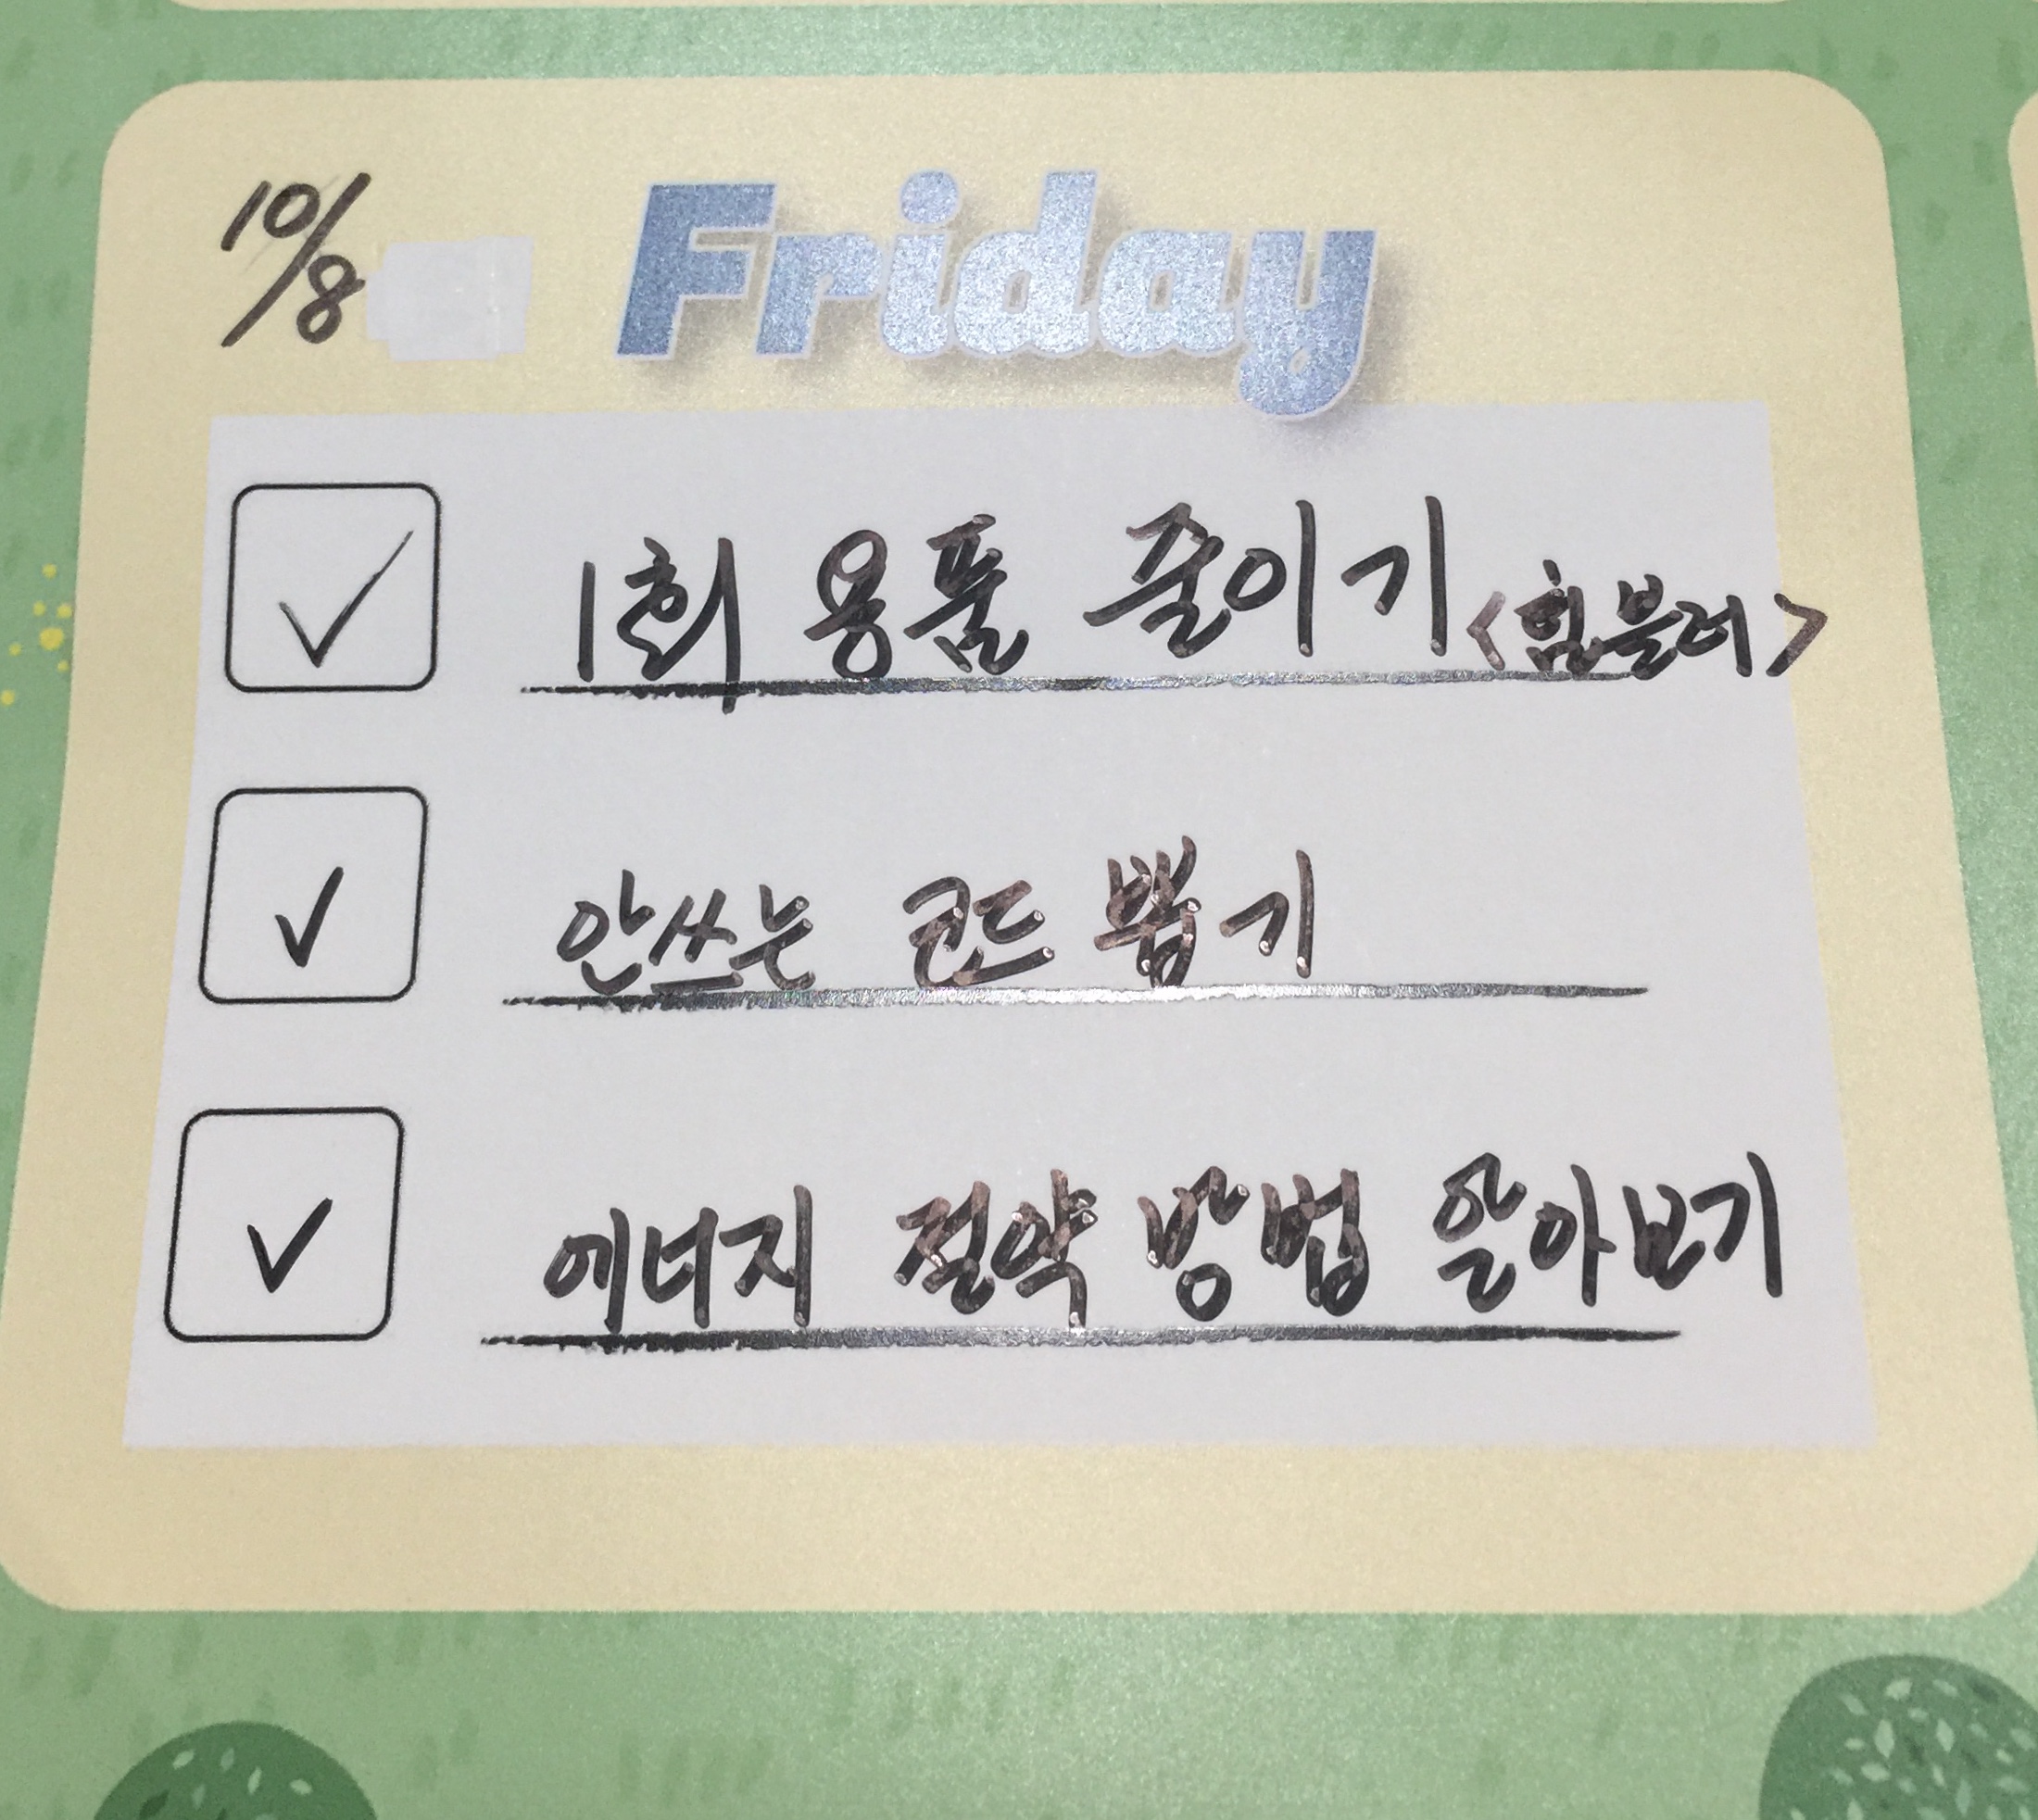 10/8 Friday
1회 용품 줄이기 <힘블러>
안쓰는 코드 뽑기
에너지 절약 방법 알아보기